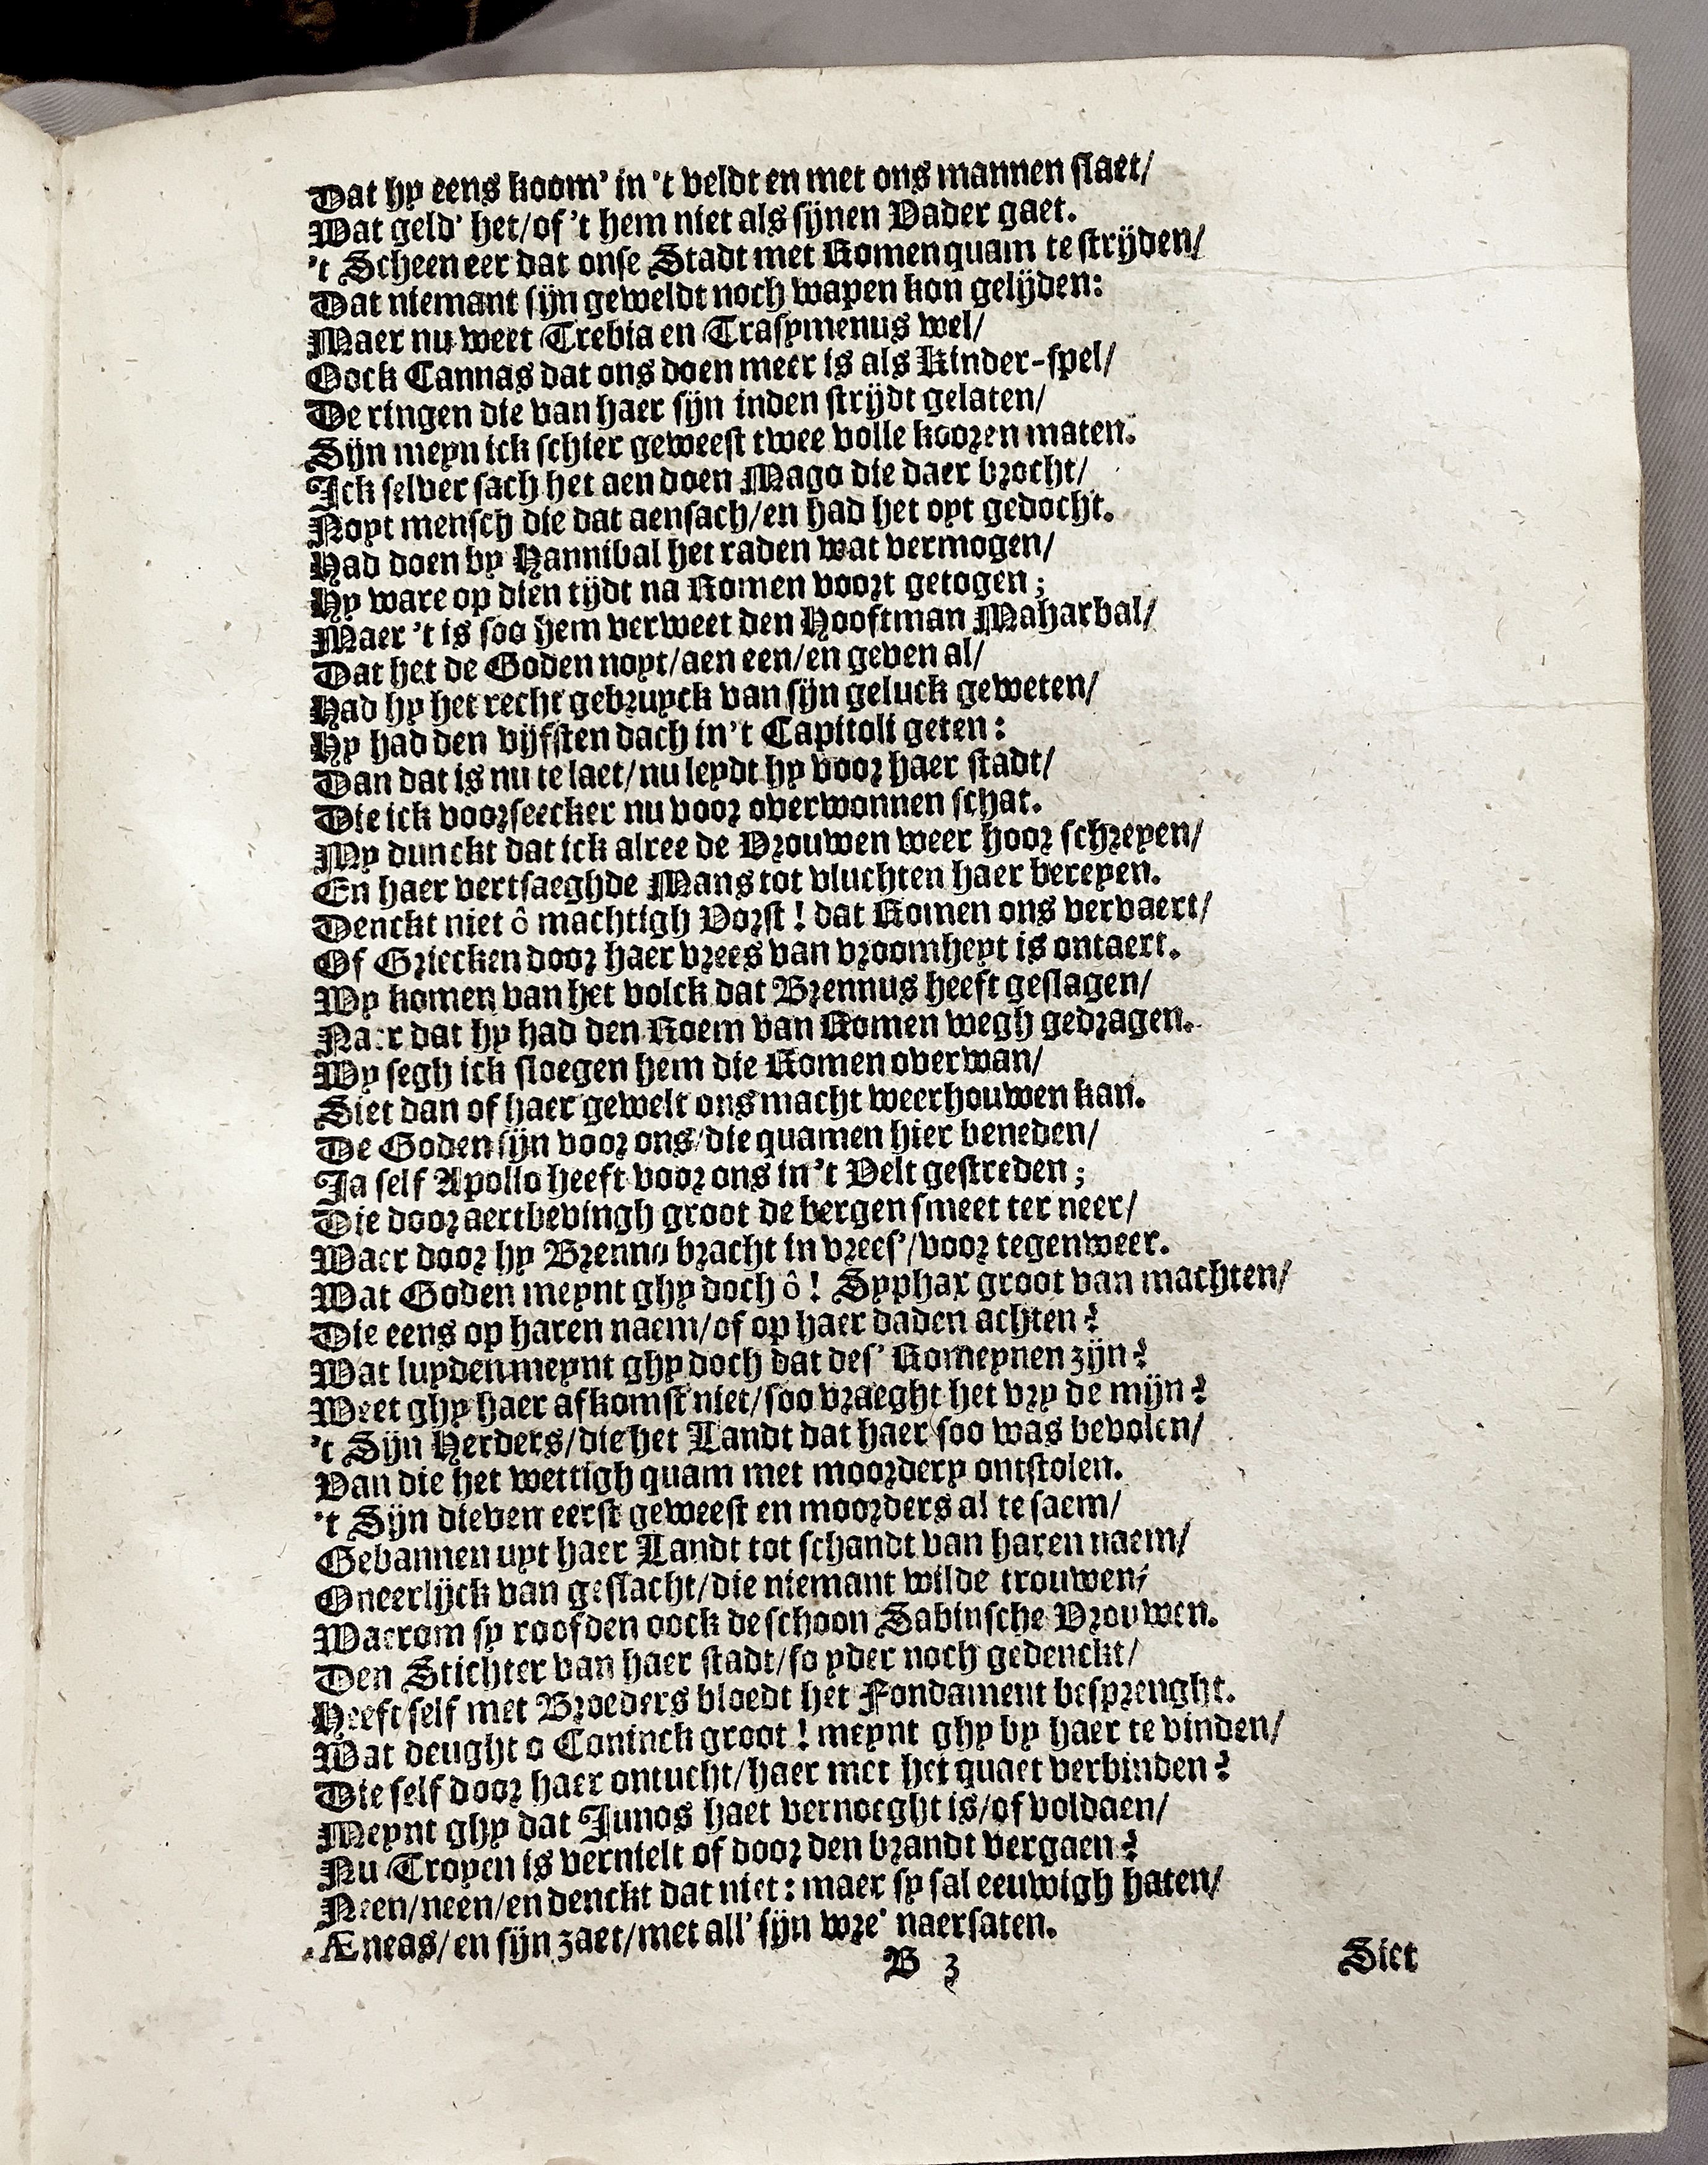 Dat hy eens koom' in 't veldt en met ons mannen slaet/
Wat geld' het/of 't hem niet als sijnen Vader gaet.
't Scheen eer dat onse Stadt met Romen quam te strijden/
Dat niemant sijn geweldt noch wapen kon gelijden:
Maer nu weet Trebia en Trasymenus wel/
Oock Cannas dat ons doen meer is als Kinder-spel/
De ringen die van haer sijn inden strijdt gelaten/
Sijn meyn ick schier geweest twee volle koozen maten.
Ick selver sach het aen doen Mago die daer brocht/
Noyt mensch die dat aensach/en had het oyt gedocht.
Had doen by Hannibal het raden wat vermogen/
Hy ware op dien tijdt na Romen voort getogen;
Maer 't is soo hem verweet den Hooftman Maharbal/
Dat het de Goden noyt/aen een/en geven al/
Had hy het recht gebruyck van sijn geluck geweten/
Hy had den vijfsten dach in 't Capitoli geten:
Dan dat is nu te laet/nu leydt hy voor haer stadt/
Die ick voorseecker nu voor overwonnen schat.
My dunckt dat ick alree de Vrouwen weer hoor schreyen/
En haer vertsaeghde Mans tot vluchten haer bereyen.
Denckt niet ô machtigh Vorst! dat Romen ons vervaert/
Of Griecken door haer vrees van vroomheyt is ontaert.
Wy komen van het volck dat Brennus heeft geslagen/
Naer dat hy had den Roem van Romen wegh gedragen.
Wy segh ick sloegen hem die Romen overwan/
Siet dan of haer gewelt ons macht weerhouwen kan.
De Goden sijn voor ons/die quamen hier beneden/
Ja self Apollo heeft voor ons in 't Velt gestreden;
Die door aertbevingh groot de bergen smeet ter neer/
Waer door hy Brenno bracht in vrees'/voor tegenweer.
Wat Goden meynt ghy doch ô! Syphax groot van machten/
Die eens op haren naem/of op haer daden achten?
Wat luyden meynt ghy doch dat des' Romeynen zijn?
Weet ghy haer afkomst niet/soo vraeght het vry de mijn?
't Sijn Herders/die het Landt dat haer soo was bevolen/
Van die het wettigh quam met moordery ontstolen.
't Sijn dieven eerst geweest en moorders al te saem/
Gebannen uyt haer Landt tot schandt van haren naem/
Oneerlijck van geslacht/die niemant wilde trouwen;
Waerom sy roofden oock de schoon Sabinsche Vrouwen.
Den Stichter van haer stadt/so yder noch gedenckt/
Heeft self met Broeders bloedt het Fondament besprenght.
Wat deught o Coninck groot! meynt ghy by haer te vinden/
Die self door haer ontucht/haer met het quaet verbinden?
Meynt ghy dat Junos haet vernoeght is/of voldaen/
Nu Troyen is vernielt of door den brandt vergaen?
Neen/neen/en denckt dat niet: maer sy sal eeuwigh haten/
Æneas/en sijn zaet/met all' sijn wre' naersaten.
B 3
Siet